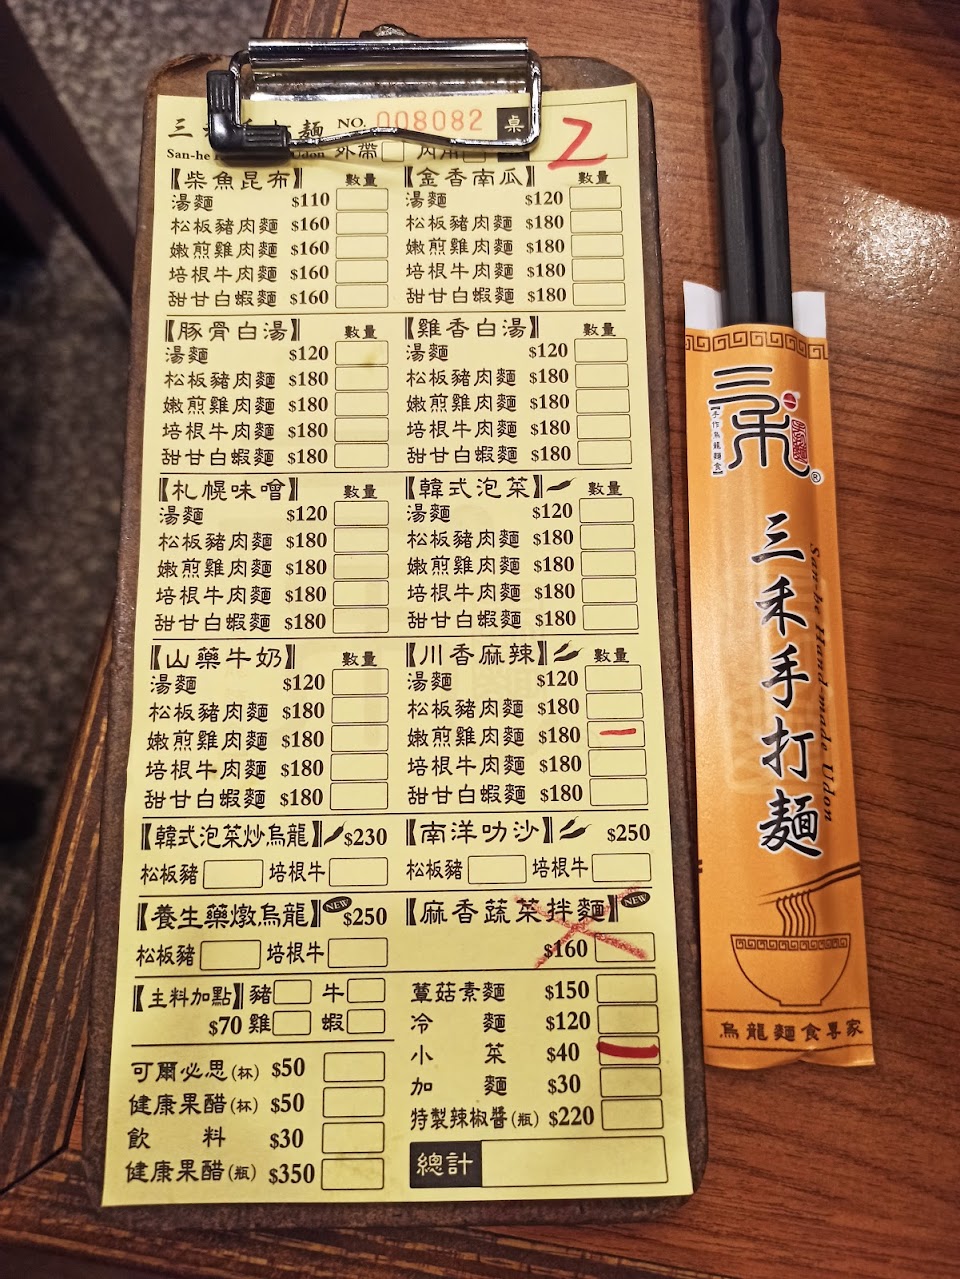 三禾手打麵 NO. 008082 桌 2
San-he Udon 外帶 內用
【柴魚昆布】 數量
湯麵 $110
松板豬肉麵 $160
嫩煎雞肉麵 $160
培根牛肉麵 $160
甜甘白蝦麵 $160
【金香南瓜】 數量
湯麵 $120
松板豬肉麵 $180
嫩煎雞肉麵 $180
培根牛肉麵 $180
甜甘白蝦麵 $180
【豚骨白湯】 數量
湯麵 $120
松板豬肉麵 $180
嫩煎雞肉麵 $180
培根牛肉麵 $180
甜甘白蝦麵 $180
【雞香白湯】 數量
湯麵 $120
松板豬肉麵 $180
嫩煎雞肉麵 $180
培根牛肉麵 $180
甜甘白蝦麵 $180
【札幌味噌】 數量
湯麵 $120
松板豬肉麵 $180
嫩煎雞肉麵 $180
培根牛肉麵 $180
甜甘白蝦麵 $180
【韓式泡菜】 數量
湯麵 $120
松板豬肉麵 $180
嫩煎雞肉麵 $180
培根牛肉麵 $180
甜甘白蝦麵 $180
【山藥牛奶】 數量
湯麵 $120
松板豬肉麵 $180
嫩煎雞肉麵 $180
培根牛肉麵 $180
甜甘白蝦麵 $180
【川香麻辣】 數量
湯麵 $120
松板豬肉麵 $180
嫩煎雞肉麵 $180
培根牛肉麵 $180
甜甘白蝦麵 $180
【韓式泡菜炒烏龍】 $230
松板豬 培根牛
【南洋叻沙】 $250
松板豬 培根牛
【養生藥燉烏龍】 NEW $250
松板豬 培根牛
【麻香蔬菜拌麵】 NEW
$160
【主料加點】 豬 牛
$70 雞 蝦
可爾必思(杯) $50
健康果醋(杯) $50
飲料 $30
健康果醋(瓶) $350
蕈菇素麵 $150
冷麵 $120
小菜 $40
加麵 $30
特製辣椒醬(瓶) $220
總計
三禾
【手作烏龍麵食】
®
三禾手打麵
San-he Hand-made Udon
烏龍麵食專家